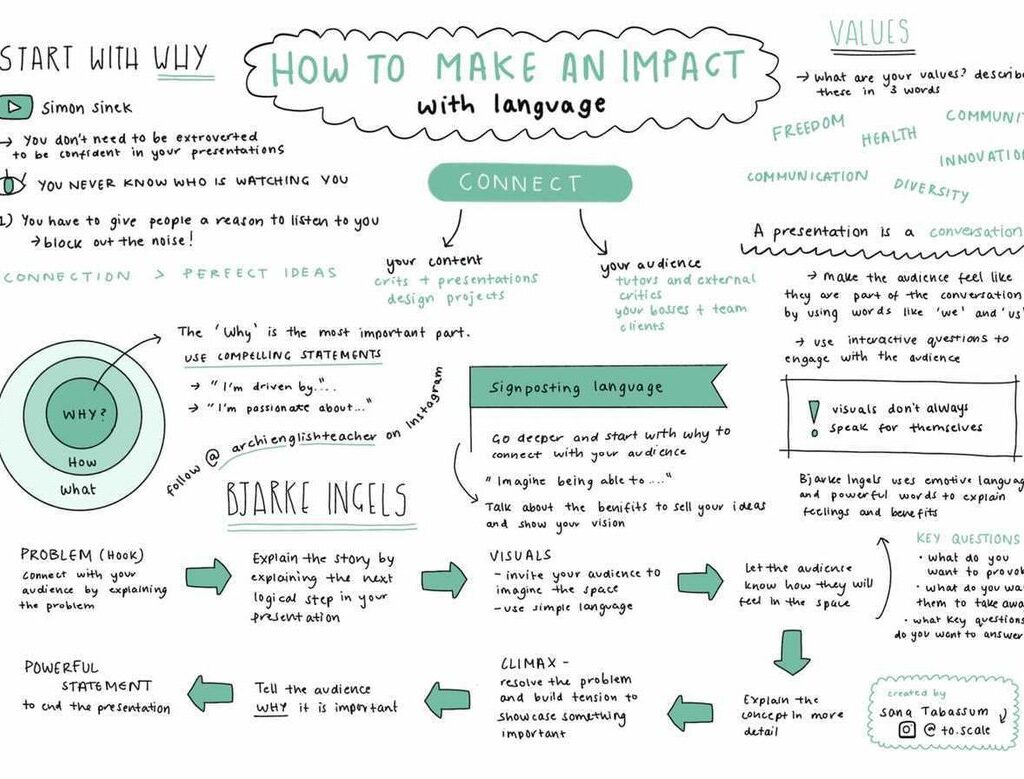 HOW TO MAKE AN IMPACT
with language
START WITH WHY
Simon Sinek
→ You don't need to be extroverted
to be confident in your presentations
YOU NEVER KNOW WHO IS WATCHING YOU
1) You have to give people a reason to listen to you
→ block out the noise!
CONNECTION > PERFECT IDEAS
CONNECT
your content
crits + presentations
design projects
your audience
tutors and external
critics
your bosses + team
clients
VALUES
→ what are your values? describe
these in 3 words
FREEDOM
HEALTH
COMMUNIT
INNOVATION
COMMUNICATION
DIVERSITY
A presentation is a conversation
→ Make the audience feel like
they are part of the conversation
by using words like 'we' and 'us'
→ use interactive questions to
engage with the audience
! visuals don't always
speak for themselves
Bjarke Ingels uses emotive languag
and powerful words to explain
feelings and benefits
WHY?
How
What
The 'Why' is the most important part.
USE COMPELLING STATEMENTS
→ "I'm driven by"....
→ "I'm passionate about..."
follow @ archienglishteacher on Instagram
Signposting language
Go deeper and start with why to
connect with your audience
"Imagine being able to ...."
Talk about the benifits to sell your ideas
and show your vision
BJARKE INGELS
PROBLEM (HOOK)
connect with your
audience by explaining
the problem
Explain the story by
explaining the next
logical step in your
presentation
VISUALS
- invite your audience to
imagine the space
- use simple language
Let the audience
know how they will
feel in the space
KEY QUESTIONS
• what do you
want to provok
• what do you wa
them to take awa
• what key questions
do you want to answer
Explain the
concept in more
detail
CLIMAX -
resolve the problem
and build tension to
showcase something
important
Tell the audience
WHY it is important
POWERFUL
STATEMENT
to end the presentation
created by
sana Tabassum
@ to.scale